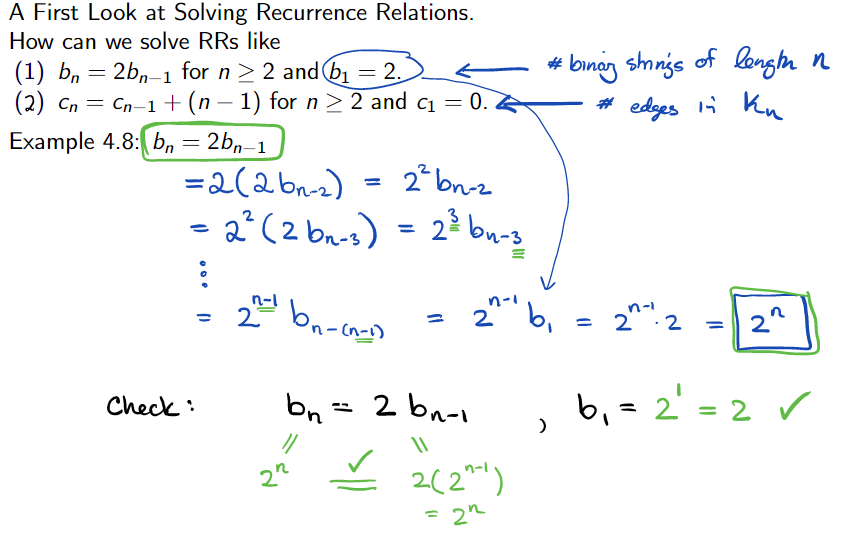 A First Look at Solving Recurrence Relations.
How can we solve RRs like
(1) bₙ = 2bₙ₋₁ for n ≥ 2 and b₁ = 2. ← # binary strings of length n
(2) cₙ = cₙ₋₁ + (n − 1) for n ≥ 2 and c₁ = 0. ← # edges in Kₙ
Example 4.8: bₙ = 2bₙ₋₁
= 2(2bₙ₋₂) = 2² bₙ₋₂
= 2² (2 bₙ₋₃) = 2³ bₙ₋₃
⋮
= 2ⁿ⁻¹ bₙ₋₍ₙ₋₁₎ = 2ⁿ⁻¹ b₁ = 2ⁿ⁻¹ · 2 = 2ⁿ
Check: bₙ = 2 bₙ₋₁ , b₁ = 2¹ = 2 ✓
|| ||
2ⁿ ✓ 2(2ⁿ⁻¹)
= 2ⁿ